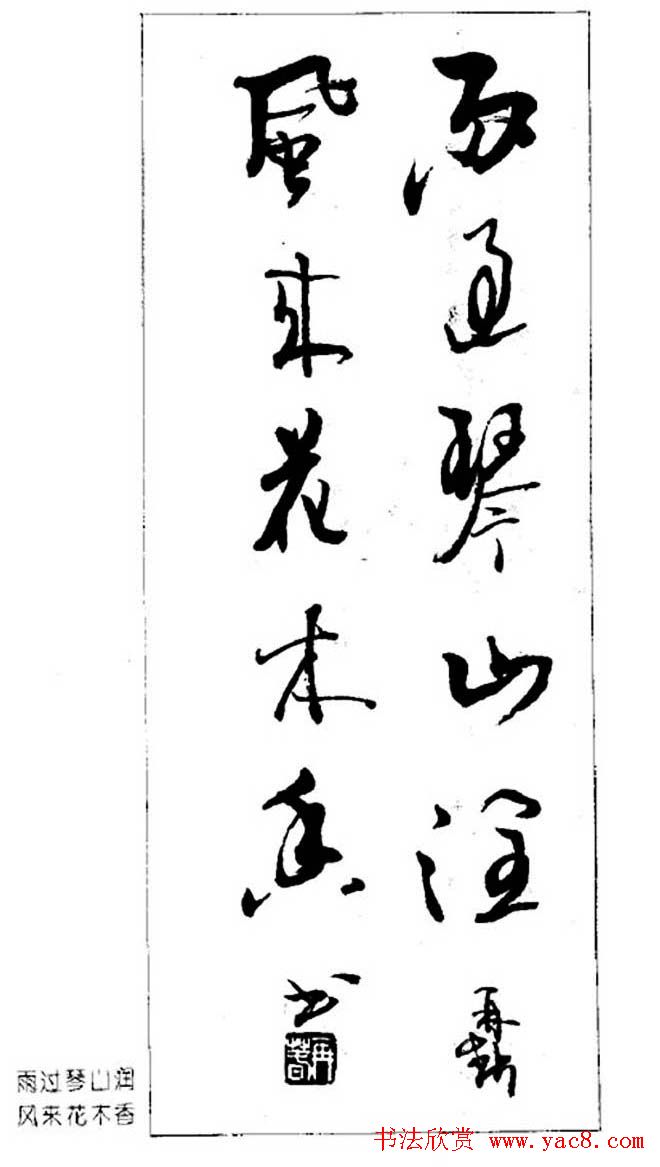 雨过琴山润
再
風来花木香
书
雨过琴山润
风来花木香
书法欣赏 www.yac8.com